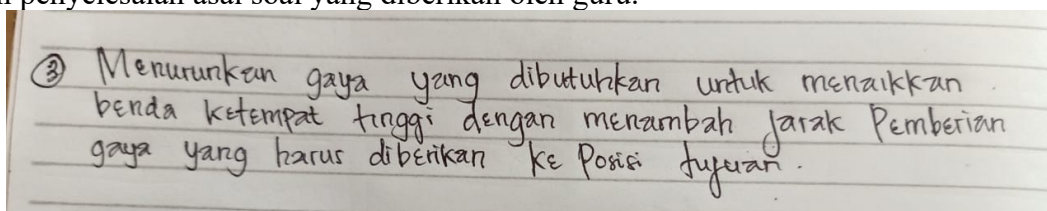 penyelesaian asal soal yang diberikan oleh guru.
③ Menurunkan gaya yang dibutuhkan untuk menaikkan
benda ketempat tinggi dengan menambah jarak Pemberian
gaya yang harus diberikan ke Posisi tujuan.